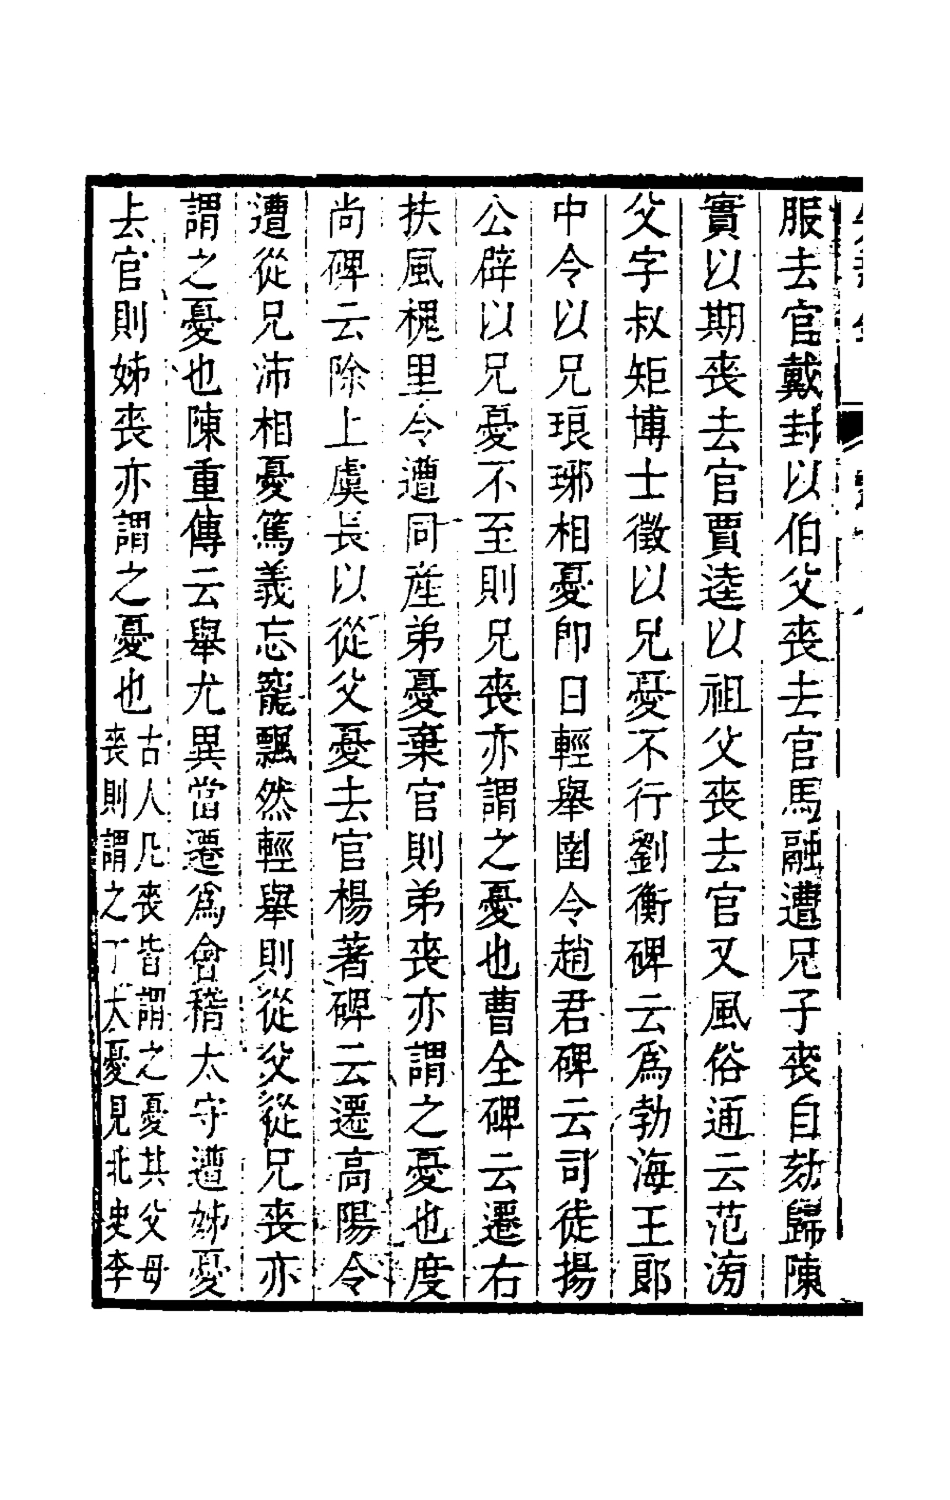 服去官戴封以伯父喪去官馬融遭兄子喪自劾歸陳
實以期喪去官賈逵以祖父喪去官又風俗通云范滂
父字叔矩博士徵以兄憂不行劉衡碑云爲勃海王郎
中令以兄琅琊相憂卽日輕舉圉令趙君碑云司徒揚
公辟以兄憂不至則兄喪亦謂之憂也曹全碑云遷右
扶風槐里令遭同産弟憂棄官則弟喪亦謂之憂也度
尚碑云除上虞長以從父憂去官楊著碑云遷高陽令
遭從兄沛相憂篤義忘寵飄然輕舉則從父從兄喪亦
謂之憂也陳重傳云舉尤異當遷爲會稽太守遭姊憂
去官則姊喪亦謂之憂也
古人凡喪皆謂之憂其父母
喪則謂之丁大憂見北史李